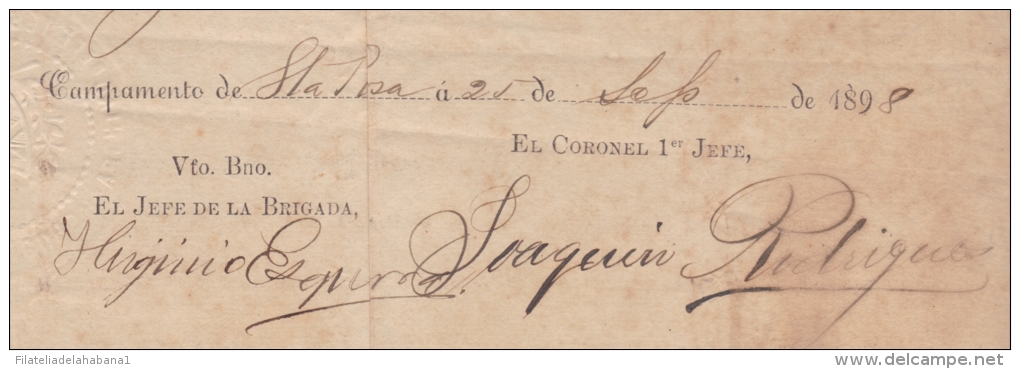 Campamento de Sta Rosa á 25 de Sep de 1898
El Coronel 1er Jefe,
Vto. Bno.
El Jefe de la Brigada,
Higinio Esquerra Joaquin Rodriguez
Filateliadelahabana1
www.delcampe.net